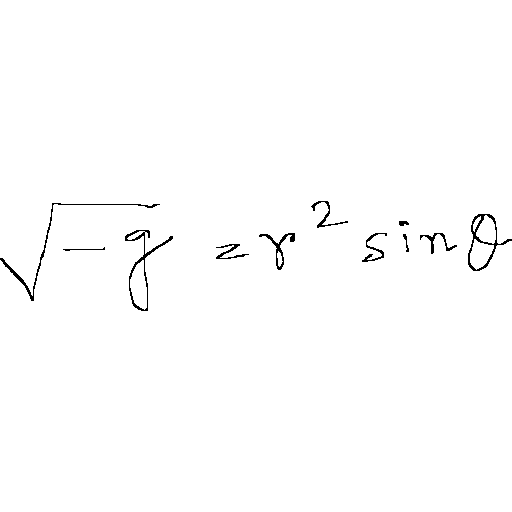 √-g = r² sinθ